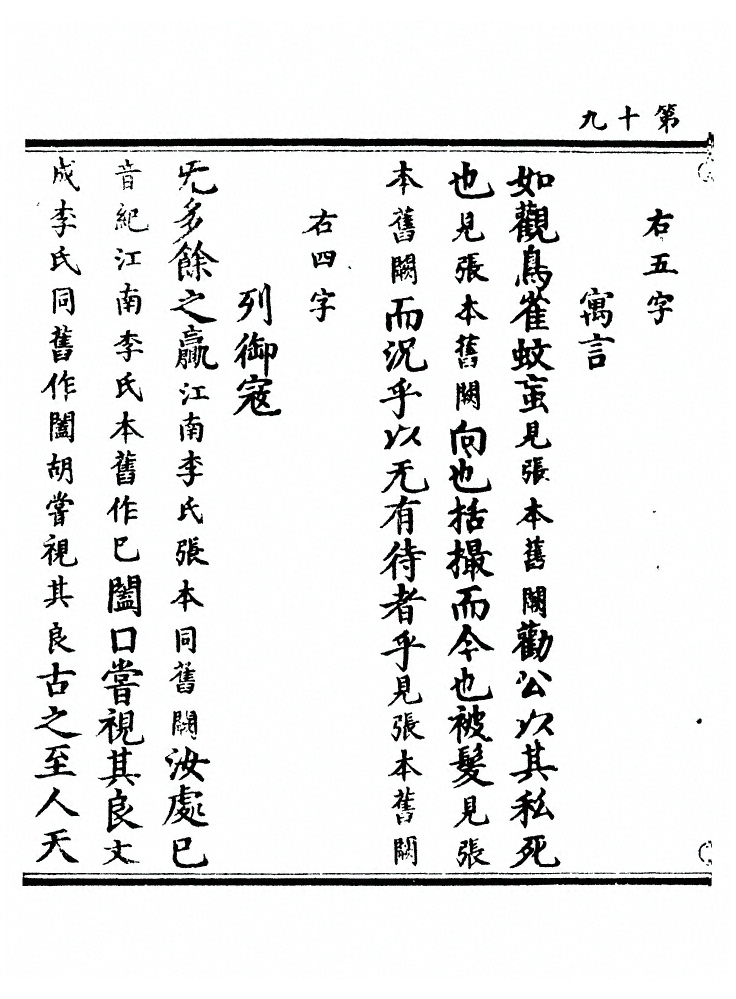 第十九
右五字
寓言
如觀鳥雀蚊䖟見張本舊闕勸公以其私死
也見張本舊闕向也括撮而今也被髮見張
本舊闕而況乎以无有待者乎見張本舊闕
右四字
列御寇
无多餘之贏江南李氏張本同舊闕汝處已
音紀江南李氏本舊作巳闔口嘗視其良文
成李氏同舊作闔胡嘗視其良古之至人天